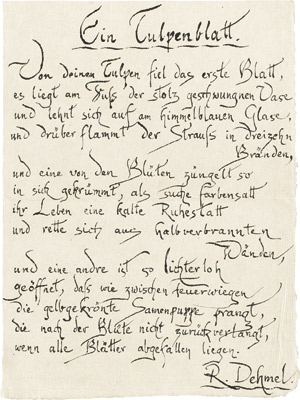 Ein Tulpenblatt.
Von deinen Tulpen fiel das erste Blatt,
es liegt am Fuß der stolz geschwungnen Vase
und lehnt sich auf am himmelblauen Glase,
und drüber flammt der Strauss in dreizehn
Bränden,
und eine von den Blüten züngelt so
in sich gekrümmt, als suche farbensatt
ihr Leben eine kalte Ruhestatt
und rette sich aus halbverbrannten
Wänden,
und eine andre ist so lichterloh
geöffnet, daß wie zwischen Feuerwiegen
die gelbgekrönte Samenpuppe prangt,
die nach der Blüte nicht zurückverlangt,
wenn alle Blätter abgefallen liegen.
R. Dehmel.